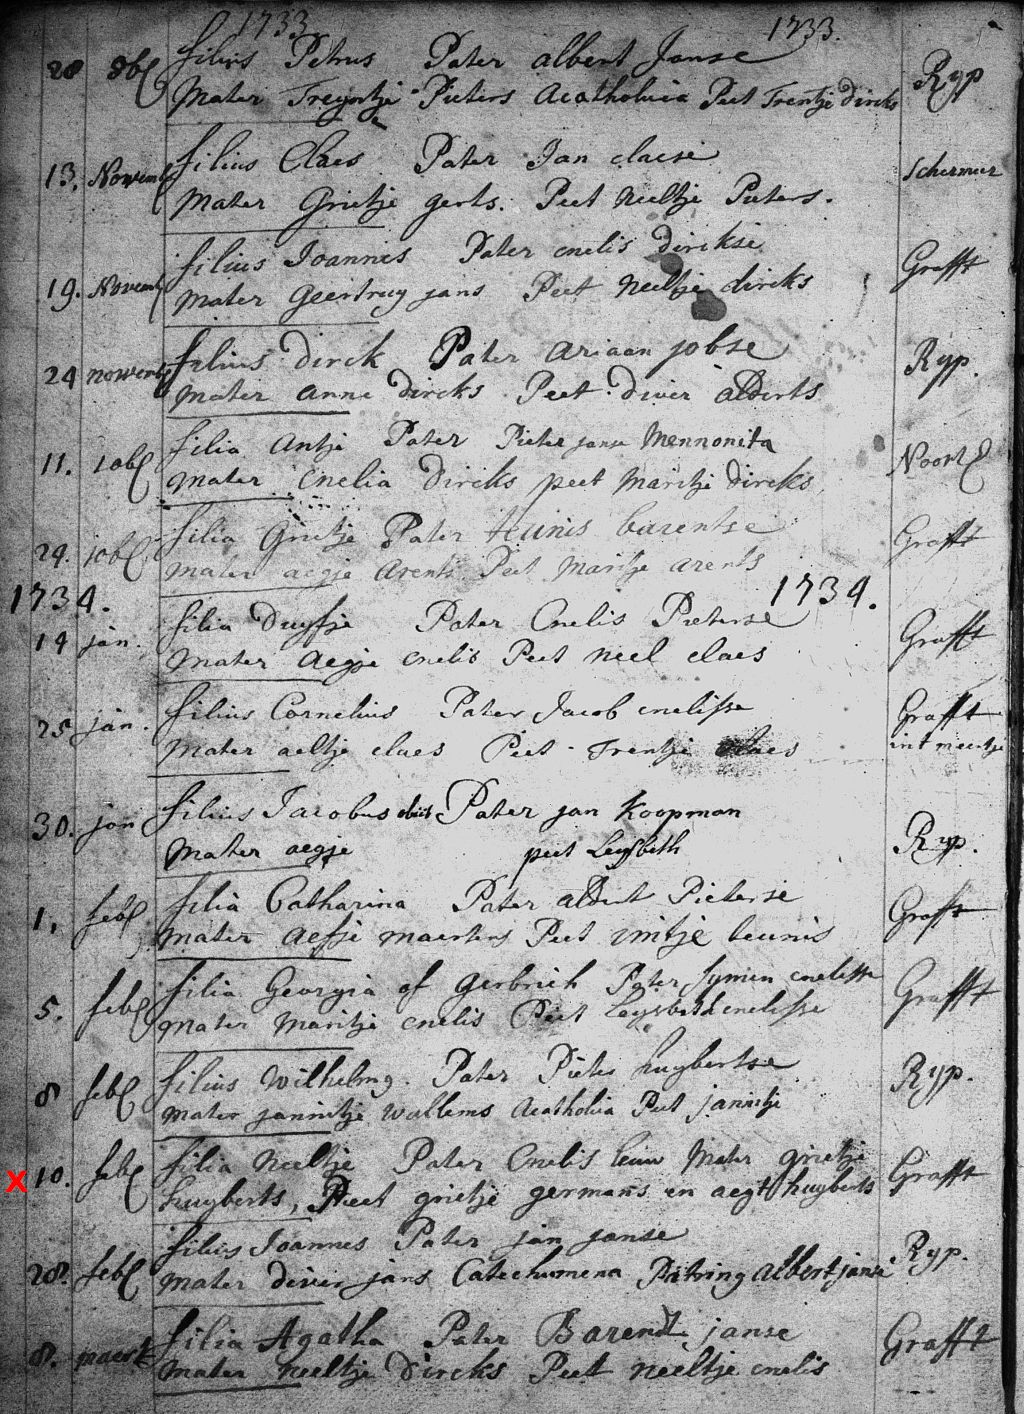 1733 1733.
20 8b filius Petrus Pater albert Janse Ryp
Mater Treyntje Pieters Acatholica Peet Trentje dircks
13. Novemb filius Claes Pater Jan claese Schermer
Mater Grietje gerts. Peet Neeltje Pieters.
19. Novemb filius Joannes Pater cnelis dirckse Grafft
Mater Geertruy jans Peet Neeltje dircks
24 novemb filius dirck Pater ariaan jobse Ryp.
Mater anne dircks Peet diver alberts
11. 10b filia antje Pater Pieter janse Mennonita Noort
Mater Cnelia dircks peet Maritje dircks
29. 10b filia Grietje Pater teunis barentse Grafft
mater aegje Arents Peet Maritje arents
1734. 1734.
14 jan. filia Duyfje Pater Cnelis Pieterse Grafft
Mater Aegje cnelis Peet neel claes
25 jan. filius Cornelius Pater Jacob cnelisse Grafft
Mater aeltje claes Peet Trentje claes int
30. jan filius Jacobus obiit Pater jan Koopman Ryp.
Mater aegje peet Leysbeth
1. feb filia Catharina Pater albert Pieterse Graft
Mater aefje maertens Peet teunis
5. feb filia Georgia of Gerbrich Pater symen cnelisse Grafft
Mater Maritje cnelis Peet Leysbeth cnelisse
8 feb filius Wilhelmg. Pater Pieter huybertse Ryp.
Mater jannitje wallems Acatholica Peet jannitje
x 10. feb filia Neeltje Pater Cnelis leuw Mater grietje Grafft
huyberts, Peet grietje germans en aegt huyberts
28. feb filius Joannes Pater jan janse Ryp.
Mater diver jans Catechumena albert janse
8. maert filia Agatha Pater Barendt janse Grafft
Mater neeltje Dircks Peet neeltje cnelis